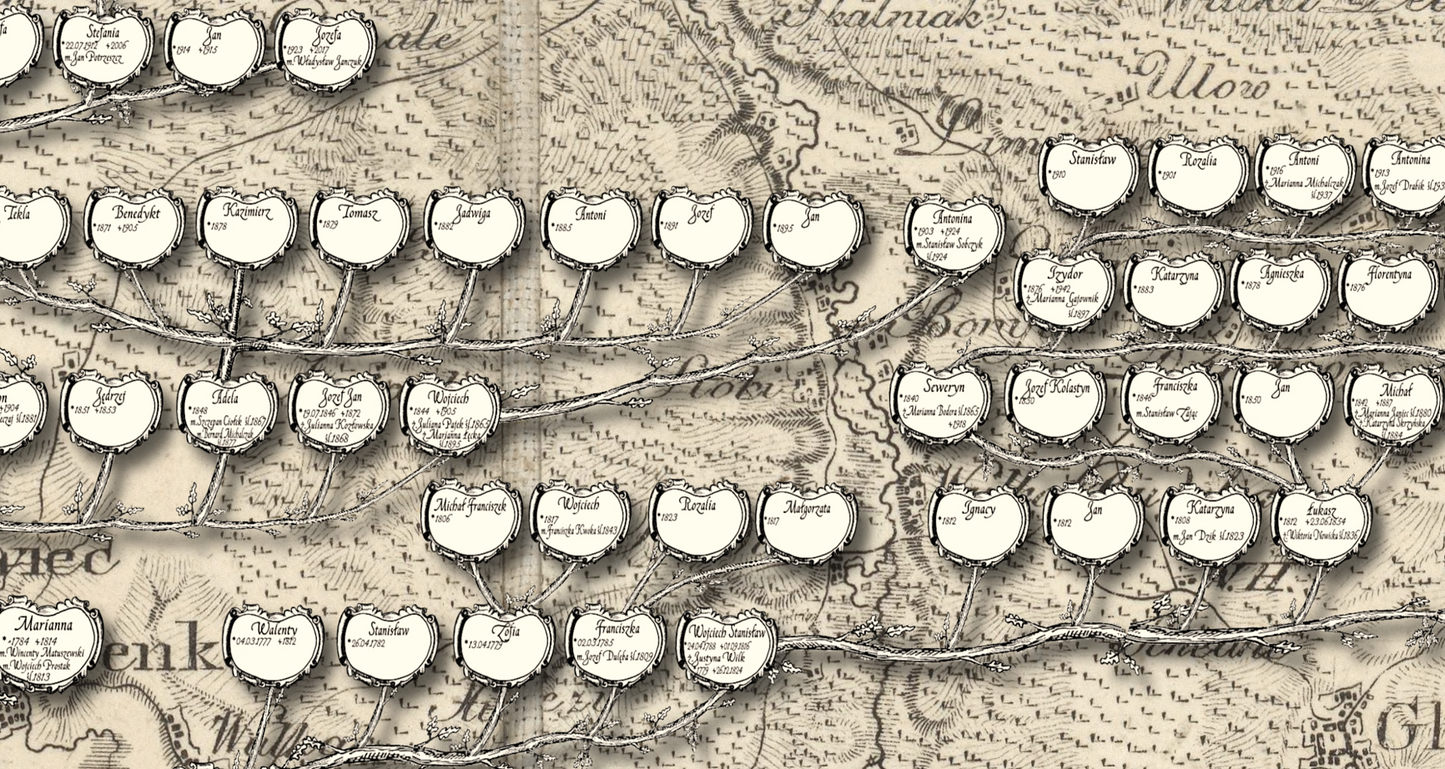 Stefania
*22.07.1912 +2006
m. Jan Potrzeszcz
Jan
*1914 +1915
Józefa
*1923 +2017
m. Władysław Janczuk
Skalniak
Ulow
Stanisław
*1910
Rozalia
*1901
Antoni
*1916
+Marianna Michalczuk
śl.1937
Antonina
*1913
m. Józef Drabik
Tekla
Benedykt
*1871 +1905
Kazimierz
*1878
Tomasz
*1879
Jadwiga
*1882
Antoni
*1885
Józef
*1891
Jan
*1895
Antonina
*1903 +1924
m. Stanisław Sobczyk
śl.1924
Izydor
*1876 +1942
+Marianna Gajownik
śl.1897
Katarzyna
*1883
Agnieszka
*1878
Florentyna
*1876
+1904
śl.1881
Jędrzej
*1851 +1853
Adela
*1848
m. Szczepan Ciołek śl.1867
m. Bernard Michalczuk
śl.1877
Józef Jan
*19.07.1846 +1872
+Julianna Kozłowska
śl.1868
Wojciech
*1844 +1905
+Juliana Pajek śl.1865
+Marianna Łęcka
śl.1895
Seweryn
*1840
+Marianna Bodera śl.1865
+1918
Józef Kolastyn
*1850
Franciszka
*1846
m. Stanisław Zając
Jan
*1850
Michał
*1842 +1887
+Marianna Jajiec śl.1880
+Katarzyna Skrzyńska
śl.1884
Michał Franciszek
*1806
Wojciech
*1817
m. Franciszka Kwoka śl.1843
Rozalia
*1823
Małgorzata
*1817
Ignacy
*1812
Jan
*1812
Katarzyna
*1808
m. Jan Dzik śl.1823
Łukasz
*1812 +23.06.1854
+Wiktoria Nowicka śl.1836
Marianna
*~1784 +1814
m. Wincenty Matuszewski
m. Wojciech Prostak
śl.1813
Walenty
*04.03.1777 +1812
Stanisław
*26.04.1782
Zofia
*13.04.1779
Franciszka
*02.03.1785
m. Józef Dulęba śl.1809
Wojciech Stanisław
*24.04.1788 +01.09.1816
+Justyna Wilk
*1779 +26.12.1824